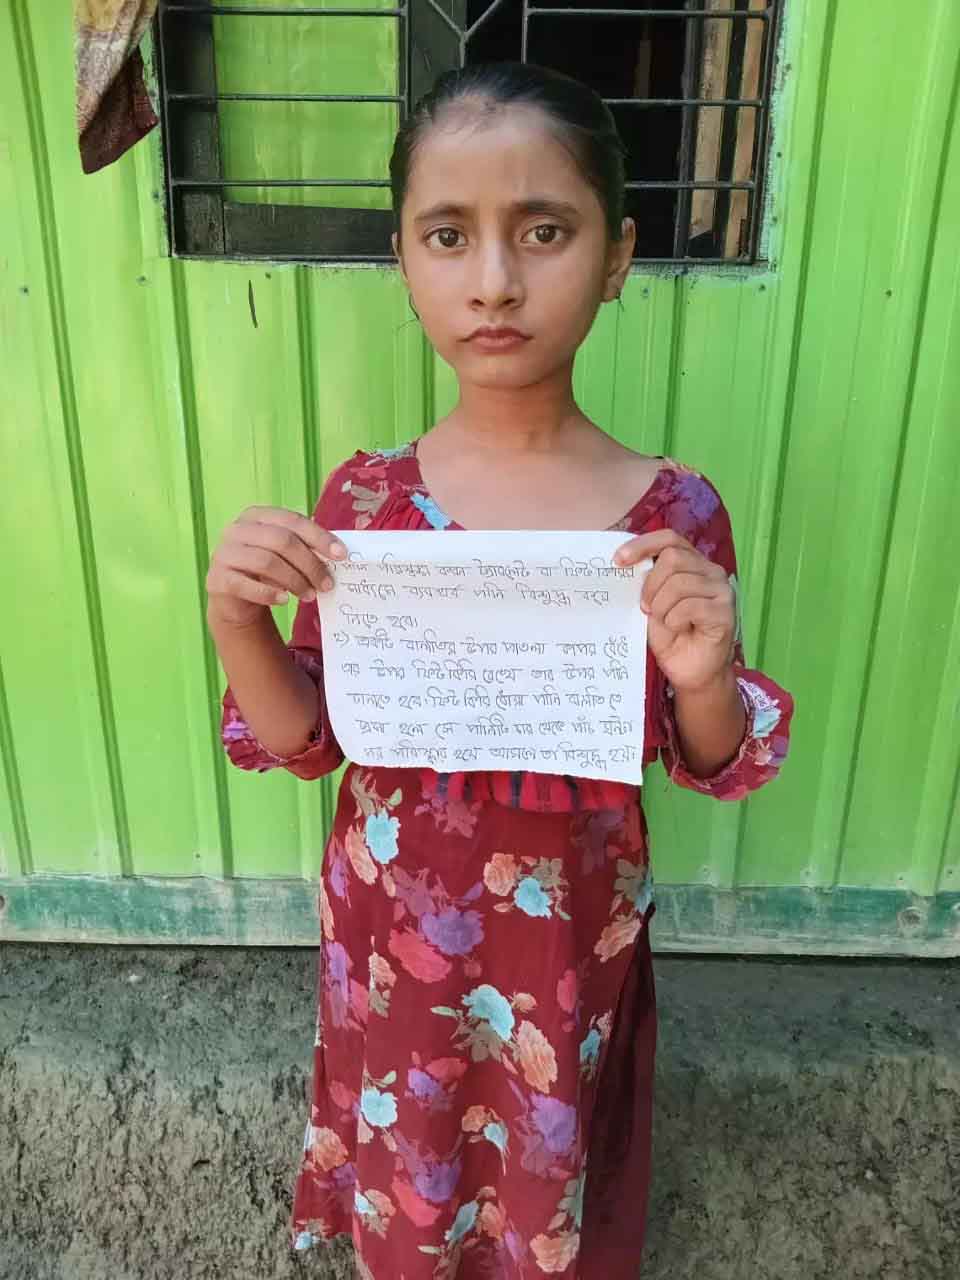 ১) পানি পরিষ্কার করন ট্যাবলেট বা ফিটকিরির
মাধ্যমে ব্যবহার্য পানি বিশুদ্ধ করে
নিতে হবে।
২) একটি বালতির উপর পাতলা কাপর বেঁধে
এর উপর ফিটকিরি রেখে তার উপর পানি
ঢালতে হবে। ফিটকিরি ধোয়া পানি বালতি তে
জমা হলে সে পানিটি চার থেকে পাঁচ ঘন্টা
পর পরিষ্কার হয়ে আসলে তা বিশুদ্ধ হয়।